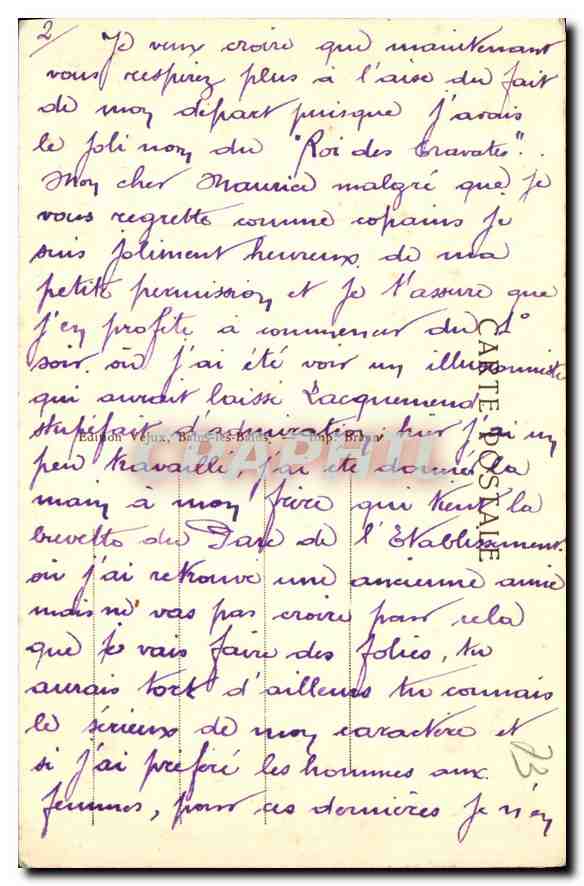 2/
Je veux croire que maintenant
vous respirez plus à l'aise du fait
de mon départ puisque j'avais
le joli nom du "Roi des Cravates".
Mon cher Maurice malgré que je
vous regrette comme copains je
suis joliment heureux de ma
petite permission et je t'assure que
j'en profite à commencer du 1°
soir où j'ai été voir un illusionniste
qui aurait laissé Lacquemend
stupéfait d'admiration, hier j'ai un
peu travaillé, j'ai été donner la
main à mon frère qui tient la
buvette du Parc de l'Etablissement
où j'ai retrouvé une ancienne amie
mais ne vas pas croire pour cela
que je vais faire des folies, tu
aurais tort d'ailleurs tu connais
le sérieux de mon caractère et
si j'ai préféré les hommes aux
femmes, pour ces dernières je n'en
CARTE POSTALE
Edition Vejux, Bains-les-Bains. — Imp. Braun
CPAPHIL